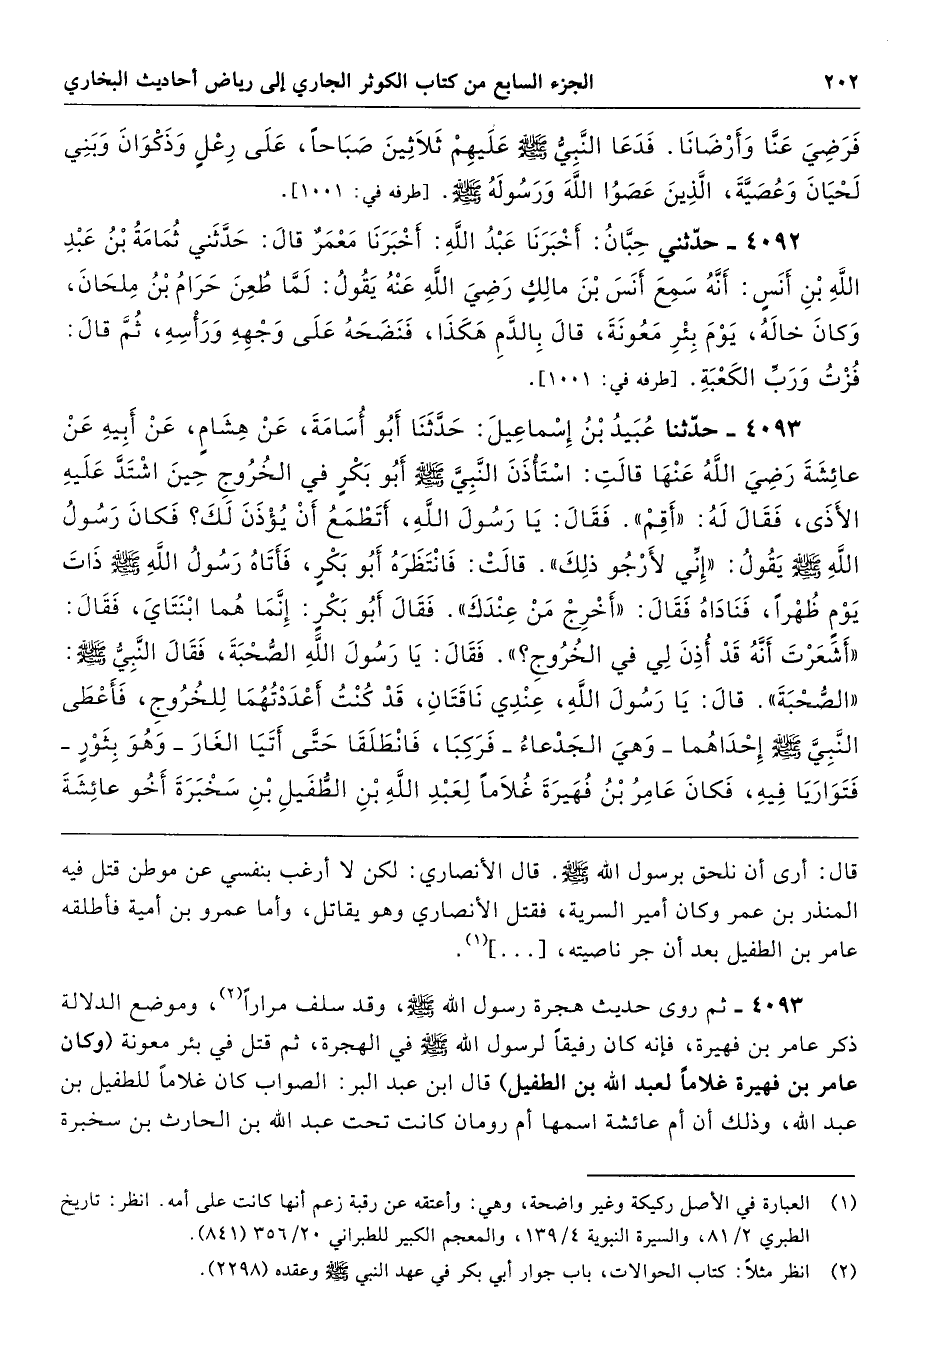 ٢٠٢ الجزء السابع من كتاب الكوثر الجاري إلى رياض أحاديث البخاري
فَرَضِيَ عَنَّا وَأَرْضَانَا. فَدَعَا النَّبِيُّ ﷺ عَلَيهِمْ ثَلَاثِينَ صَبَاحاً، عَلَى رِعْلٍ وَذَكْوَانَ وَبَنِي
لَحْيَانَ وَعُصَيَّةَ، الَّذِينَ عَصَوُا اللَّهَ وَرَسُولَهُ ﷺ. [طرفه في: ١٠٠١].
٤٠٩٢ ـ حدّثني حِبَّانُ: أَخْبَرَنَا عَبْدُ اللَّهِ: أَخْبَرَنَا مَعْمَرٌ قالَ: حَدَّثَني ثُمَامَةُ بْنُ عَبْدِ
اللَّهِ بْنِ أَنَسٍ: أَنَّهُ سَمِعَ أَنَسَ بْنَ مالِكٍ رَضِيَ اللَّهُ عَنْهُ يَقُولُ: لَمَّا طُعِنَ حَرَامُ بْنُ مِلحَانَ،
وَكانَ خالَهُ، يَوْمَ بِئْرِ مَعُونَةَ، قالَ بِالدَّمِ هكَذَا، فَنَضَحَهُ عَلَى وَجْهِهِ وَرَأْسِهِ، ثُمَّ قالَ:
فُزْتُ وَرَبِّ الكَعْبَةِ. [طرفه في: ١٠٠١].
٤٠٩٣ ـ حدّثنا عُبَيدُ بْنُ إِسْماعِيلَ: حَدَّثَنَا أَبُو أُسَامَةَ، عَنْ هِشَامٍ، عَنْ أَبِيهِ عَنْ
عائِشَةَ رَضِيَ اللَّهُ عَنْهَا قالَتِ: اسْتَأْذَنَ النَّبِيَّ ﷺ أَبُو بَكْرٍ في الخُرُوجِ حِينَ اشْتَدَّ عَلَيهِ
الأَذَى، فَقَالَ لَهُ: «أَقِمْ». فَقَالَ: يَا رَسُولَ اللَّهِ، أَتَطْمَعُ أَنْ يُؤْذَنَ لَكَ؟ فَكانَ رَسُولُ
اللَّهِ ﷺ يَقُولُ: «إِنِّي لأَرْجُو ذلِكَ». قالَتْ: فَانْتَظَرَهُ أَبُو بَكْرٍ، فَأَتَاهُ رَسُولُ اللَّهِ ﷺ ذَاتَ
يَوْمٍ ظُهْراً، فَنَادَاهُ فَقَالَ: «أَخْرِجْ مَنْ عِنْدَكَ». فَقَالَ أَبُو بَكْرٍ: إِنَّمَا هُما ابْنَتَايَ، فَقَالَ:
«أَشَعَرْتَ أَنَّهُ قَدْ أُذِنَ لِي في الخُرُوجِ؟». فَقَالَ: يَا رَسُولَ اللَّهِ الصُّحْبَةَ، فَقَالَ النَّبِيُّ ﷺ:
«الصُّحْبَةَ». قالَ: يَا رَسُولَ اللَّهِ، عِنْدِي نَاقَتَانِ، قَدْ كُنْتُ أَعْدَدْتُهُمَا لِلخُرُوجِ، فَأَعْطَى
النَّبِيَّ ﷺ إِحْدَاهُما ـ وَهيَ الجَدْعاءُ ـ فَرَكِبَا، فَانْطَلَقَا حَتَّى أَتَيَا الغَارَ ـ وَهُوَ بِثَوْرٍ ـ
فَتَوَارَيَا فِيهِ، فَكانَ عَامِرُ بْنُ فُهَيرَةَ غُلَاماً لِعَبْدِ اللَّهِ بْنِ الطُّفَيلِ بْنِ سَخْبَرَةَ أَخُو عائِشَةَ
قال: أرى أن نلحق برسول الله ﷺ. قال الأنصاري: لكن لا أرغب بنفسي عن موطن قتل فيه
المنذر بن عمر وكان أمير السرية، فقتل الأنصاري وهو يقاتل، وأما عمرو بن أمية فأطلقه
عامر بن الطفيل بعد أن جر ناصيته، [...](١).
٤٠٩٣ ـ ثم روى حديث هجرة رسول الله ﷺ، وقد سلف مراراً(٢)، وموضع الدلالة
ذكر عامر بن فهيرة، فإنه كان رفيقاً لرسول الله ﷺ في الهجرة، ثم قتل في بئر معونة (وكان
عامر بن فهيرة غلاماً لعبد الله بن الطفيل) قال ابن عبد البر: الصواب كان غلاماً للطفيل بن
عبد الله، وذلك أن أم عائشة اسمها أم رومان كانت تحت عبد الله بن الحارث بن سخبرة
(١) العبارة في الأصل ركيكة وغير واضحة، وهي: وأعتقه عن رقبة زعم أنها كانت على أمه. انظر: تاريخ
الطبري ٢/ ٨١، والسيرة النبوية ٤/ ١٣٩، والمعجم الكبير للطبراني ٢٠/ ٣٥٦ (٨٤١).
(٢) انظر مثلاً: كتاب الحوالات، باب جوار أبي بكر في عهد النبي ﷺ وعقده (٢٢٩٨).